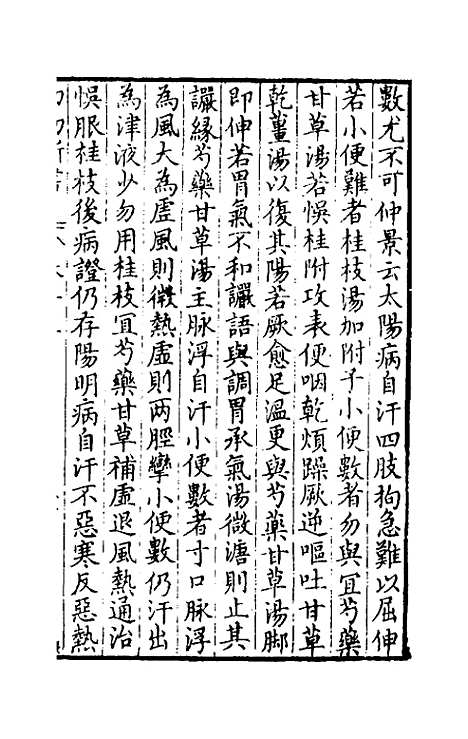 數尤不可仲景云太陽病自汗四肢拘急難以屈伸
若小便難者桂枝湯加附子小便數者勿與宜芍藥
甘草湯若悞桂附攻表便咽乾煩躁厥逆嘔吐甘草
乾薑湯以復其陽若厥愈足溫更與芍藥甘草湯脚
即伸若胃氣不和讝語與調胃承氣湯微溏則止其
讝緣芍藥甘草湯主脉浮自汗小便數者寸口脉浮
為風大為虛風則微熱虛則两脛攣小便數仍汗出
為津液少勿用桂枝宜芍藥甘草補虛退風熱通治
悞服桂枝後病證仍存陽明病自汗不惡寒反惡熱